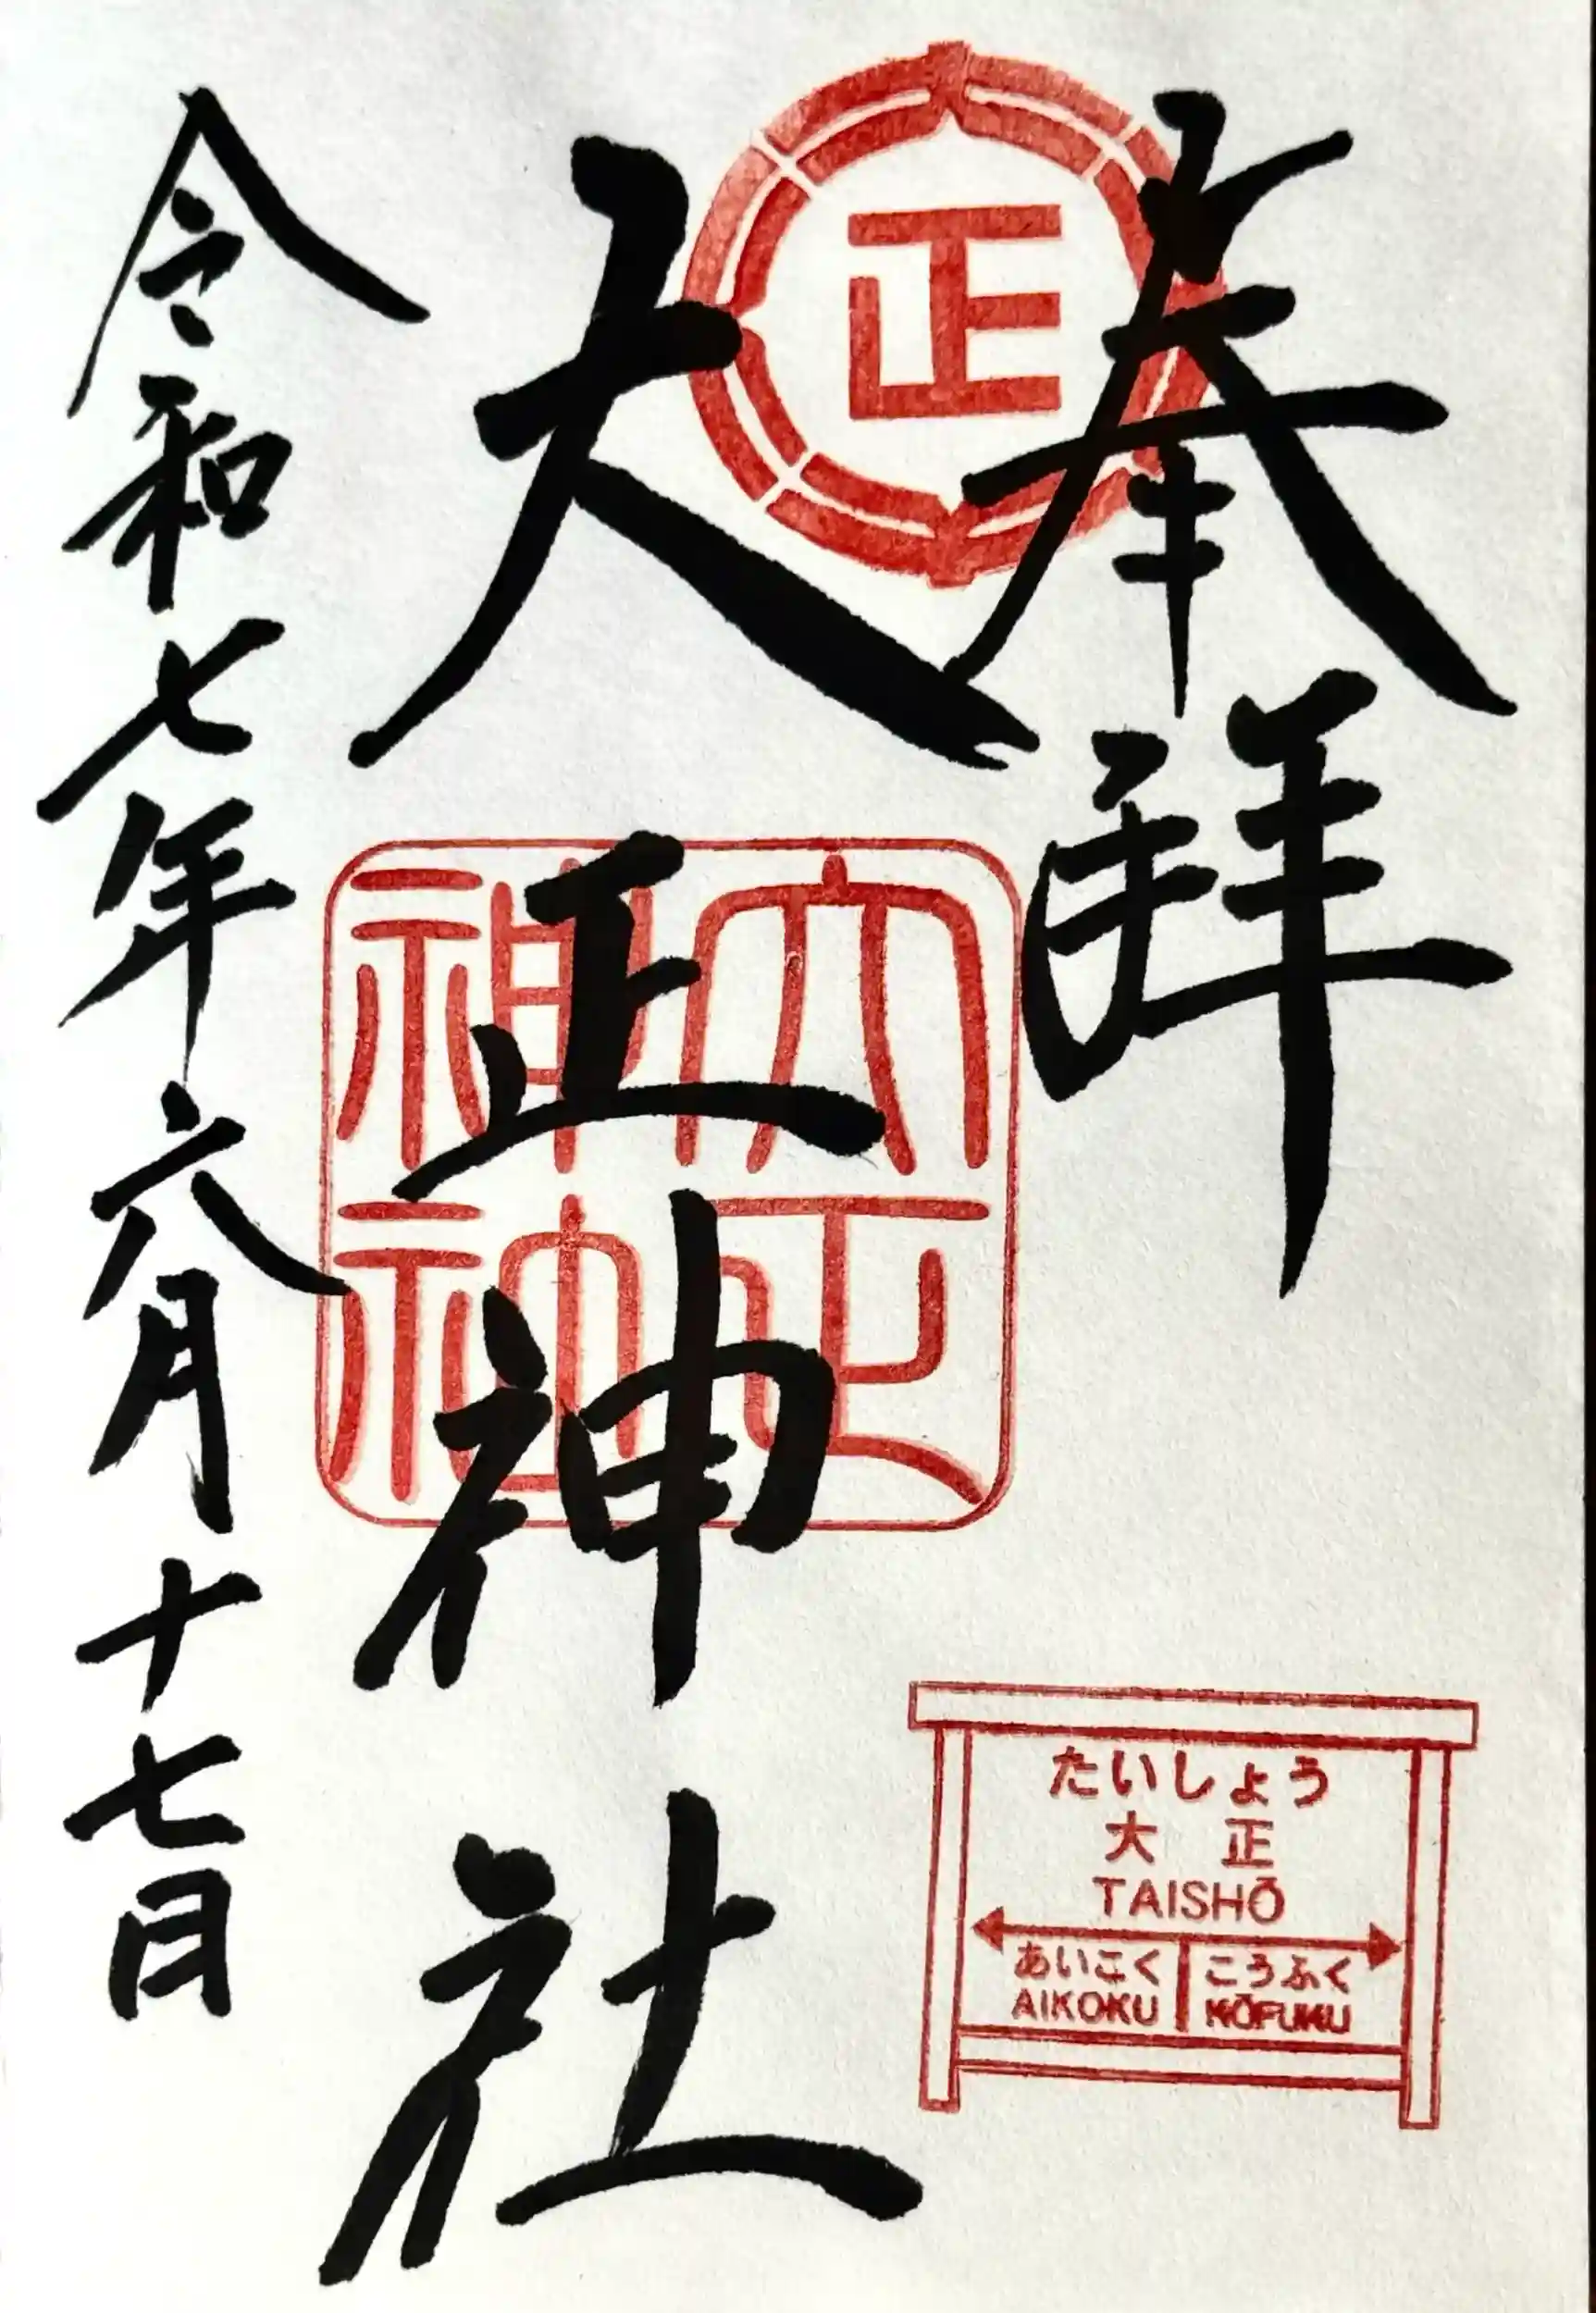 奉拜
正
大正神社
大正神神
令和七年六月十七日
たいしょう
大正
TAISHŌ
あいこく こうふく
AIKOKU KŌFUKU